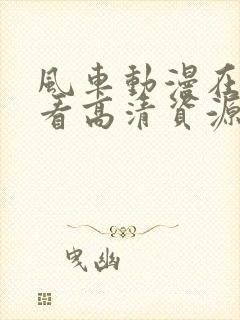 風車動漫在
看高清資源
曳幽